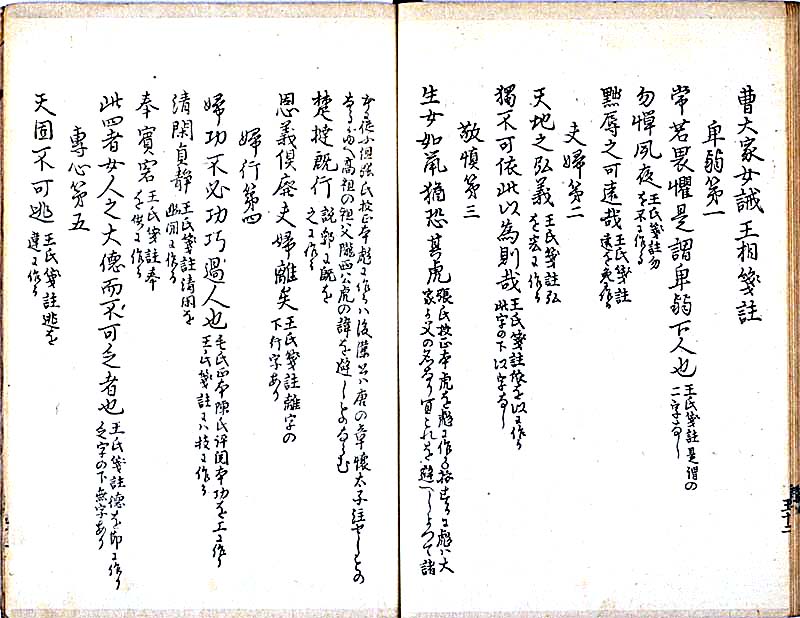 曹大家女誡王相箋註
卑弱第一
常若畏懼是謂卑弱下人也 王氏箋註是謂の
二字なし
勿憚夙夜 王氏箋註勿
を不に作る
黙辱之可遠哉 王氏箋註
遠を免に作る
夫婦第二
天地之弘義 王氏箋註弘
を宏に作る
獨不可依此以為則哉 王氏箋註依を以に作り
此字の下以字なし
敬慎第三
生女如鼠猶恐其虎 張氏校正本虎を彪に作る按するに彪ハ大
家の父の名なり宜これを避へしよつて諸
楚撻既行 説郛に既を
之に作る
恩義倶廃夫婦離矣 王氏箋註離字の
下行字あり
婦行第四
婦功不必功巧過人也 毛氏正本陳氏評閲本功を工に作り
王氏箋註にハ技に作る
清閑貞静 王氏箋註清閑を
幽閒に作る
奉賓客 王氏箋註奉
を供に作る
此四者女人之大徳而不可乏者也 王氏箋註徳を節に作り
乏字の下無字あり
專心第五
天固不可逃 王氏箋註逃を
違に作る
五十二